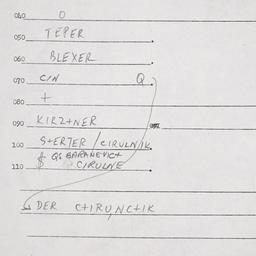 040 O
050 TEPER
060 BLEXER
070 C/N Q
080 +
090 KIRZ+NER
100 S+ERTER / CIRULN/K
$ Q: BARANEVIC+
110 $ CIRULNE
DER C+IRU,NC+IK